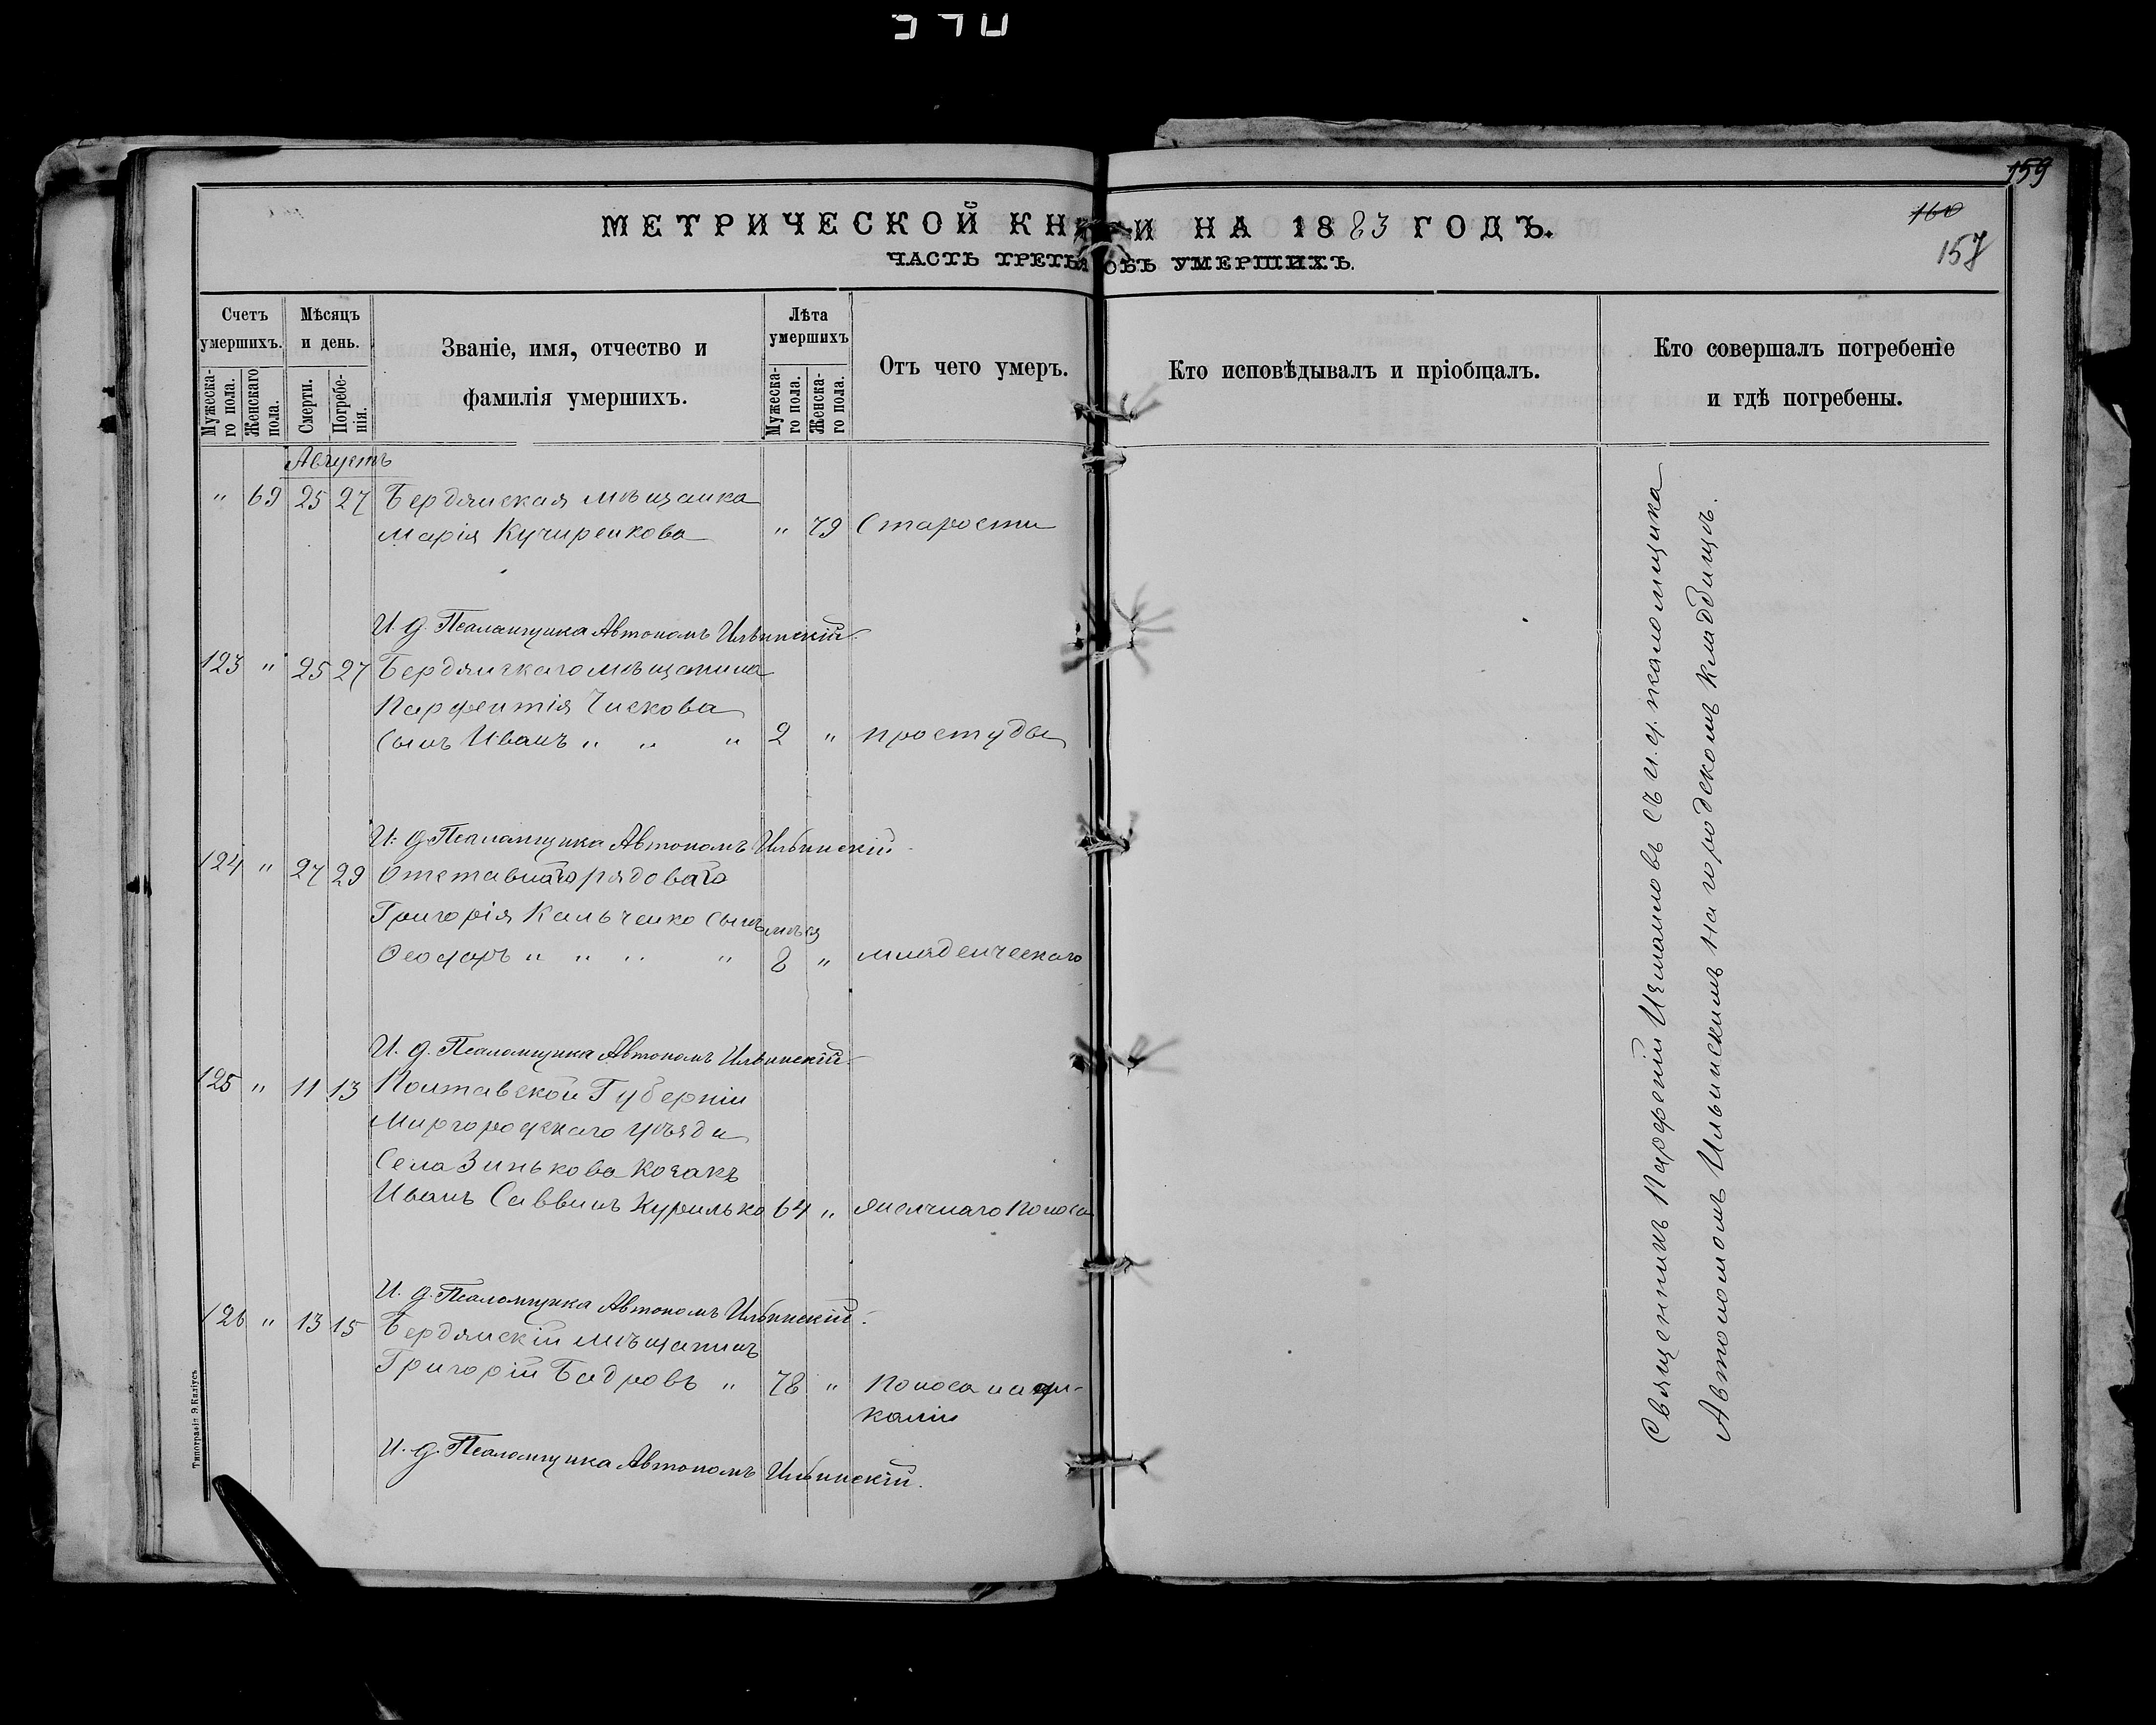 МЕТРИЧЕСКОЙ КНИГИ НА 1883 ГОДЪ.
ЧАСТЬ ТРЕТЬЯ ОБЪ УМЕРШИХЪ.
159
160
157
Счетъ умершихъ.
Мужеска-го пола.
Женскаго пола.
Мѣсяцъ и день.
Смерти.
Погребе-нія.
Званіе, имя, отчество и
фамилія умершихъ.
Лѣта умершихъ
Мужеска-го пола.
Женска-го пола.
Отъ чего умеръ.
Кто исповѣдывалъ и пріобщалъ.
Кто совершалъ погребеніе
и гдѣ погребены.
Августъ
" 69 25 27 Бердянская мѣщанка
Марія Кучиренкова " 79 Старости
И. д. Псаломщика Автономъ Ильинскій.
123 " 25 27 Бердянскаго мѣщанина
Парфентія Чискова
сынъ Иванъ " " " 2 " простуды
И. д. Псаломщика Автономъ Ильинскій
124 " 27 29 Отставнаго рядоваго
Григорія Кальченко сынъ мѣся
Ѳеодоръ " " " " 8 " младенческаго
И. д. Псаломщика Автономъ Ильинскій
125 " 11 13 Полтавской Губерніи
Миргородскаго уѣзда
Села Зинькова козакъ
Иванъ Саввинъ Курилько 64 " поноса
И. д. Псаломщика Автономъ Ильинскій.
126 " 13 15 Бердянскій мѣщанинъ
Григорій Бадровъ " 78 " Поноса
И. д. Псаломщика Автономъ Ильинскій.
Священникъ Парфеній Измаиловъ съ и. д. псаломщика
Автономомъ Ильинскимъ на городскомъ кладбищѣ.
Типографія Э. Киліусъ